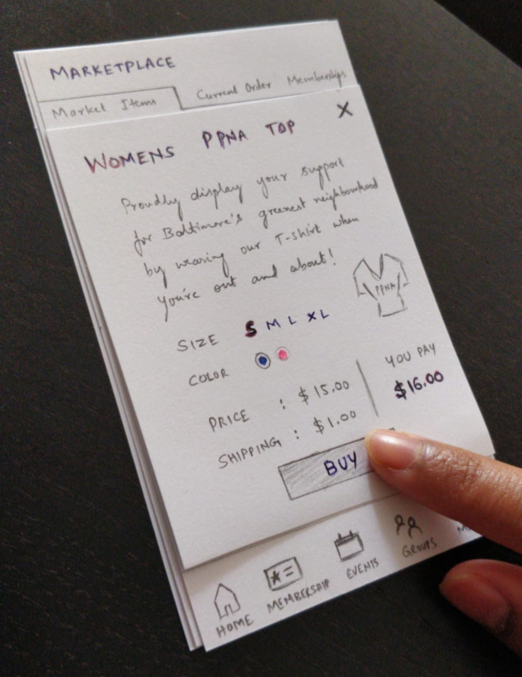 MARKETPLACE
Market Items Current Order Memberships
X
WOMENS PPNA TOP
Proudly display your support
for Baltimore's greenest neighbourhood
by wearing our T-shirt when
you're out and about!
PPNA
SIZE S M L XL
COLOR
PRICE : $15.00
SHIPPING : $1.00
YOU PAY
$16.00
BUY
HOME MEMBERSHIP EVENTS GROUPS